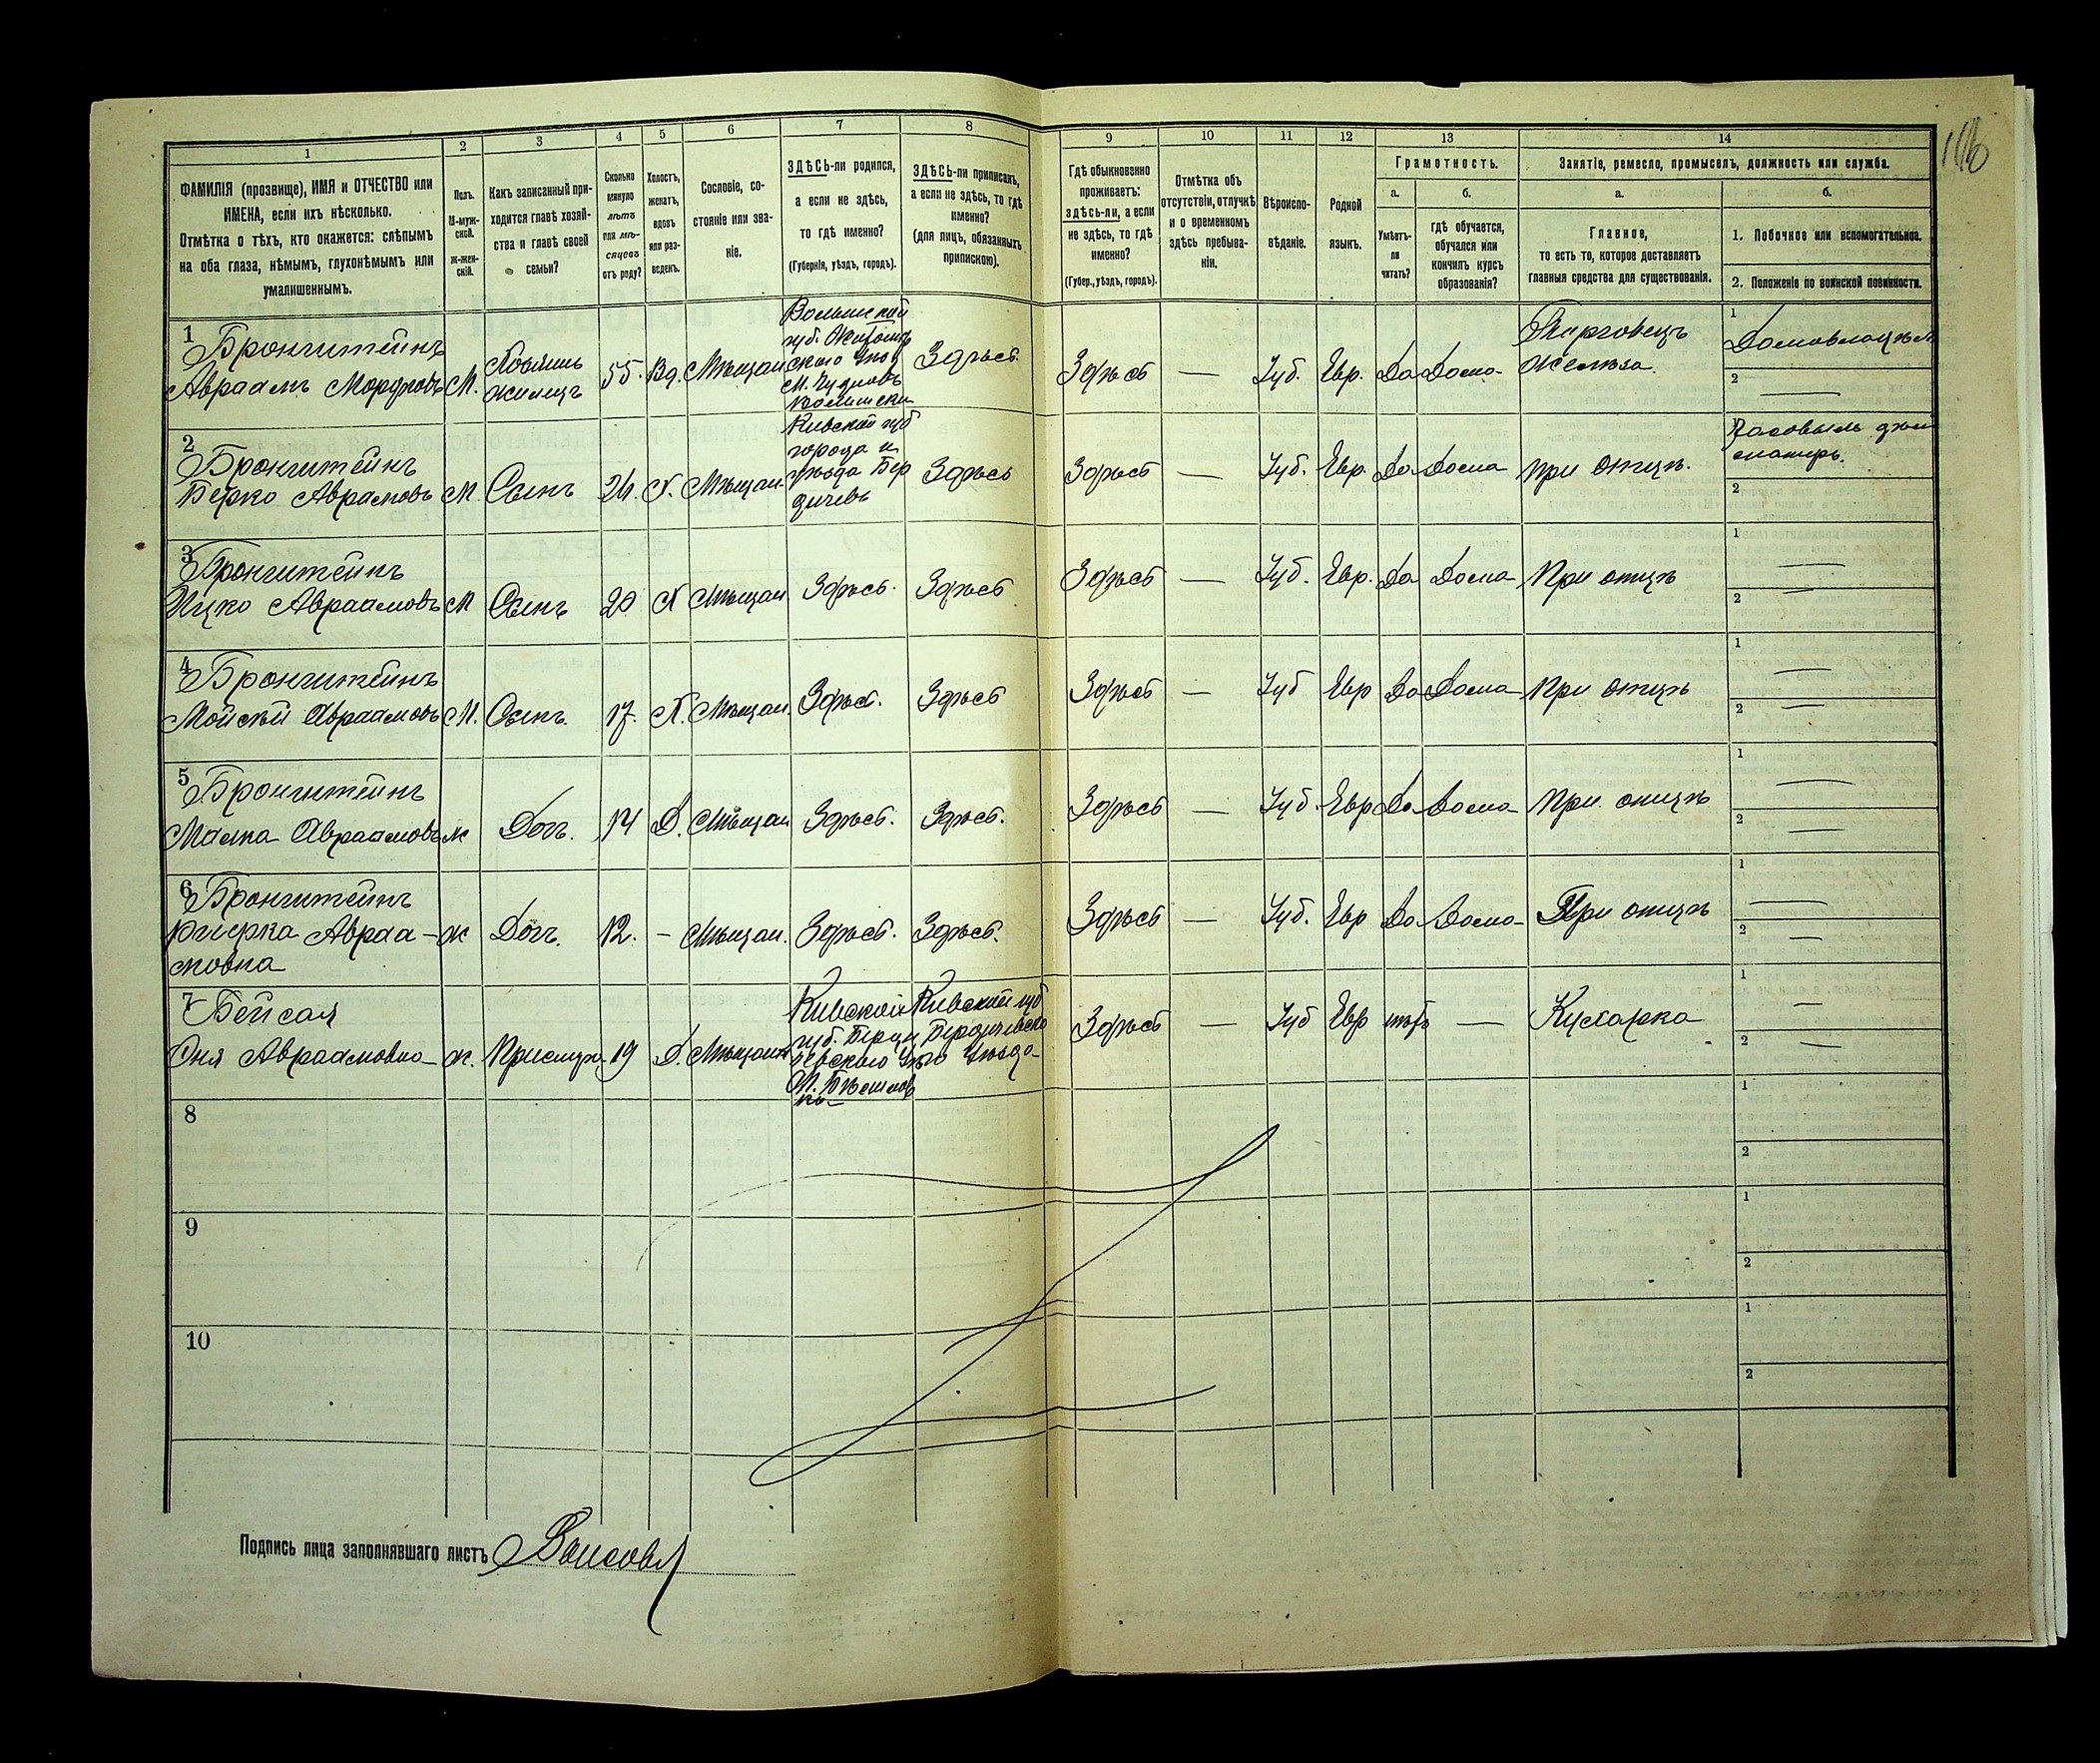 1 2 3 4 5 6 7 8 9 10 11 12 13 14
ФАМИЛІЯ (прозвище), ИМЯ и ОТЧЕСТВО или
ИМЕНА, если ихъ нѣсколько.
Отмѣтка о тѣхъ, кто окажется: слѣпымъ
на оба глаза, нѣмымъ, глухонѣмымъ или
умалишеннымъ.
Полъ.
М-муж-
ской.
Ж-жен-
скій.
Какъ записанный при-
ходится главѣ хозяй-
ства и главѣ своей
семьи?
Сколько
минуло
лѣтъ
или мѣ-
сяцевъ
отъ роду?
Холостъ,
женатъ,
вдовъ
или раз-
веденъ.
Сословіе, со-
стояніе или зва-
ніе.
ЗДѢСЬ-ли родился,
а если не здѣсь,
то гдѣ именно?
(Губернія, уѣздъ, городъ).
ЗДѢСЬ-ли приписанъ,
а если не здѣсь, то гдѣ
именно?
(для лицъ, обязанныхъ
припискою).
Гдѣ обыкновенно
проживаетъ:
здѣсь-ли, а если
не здѣсь, то гдѣ
именно?
(Губер., уѣздъ, городъ).
Отмѣтка объ
отсутствіи, отлучкѣ
и о временномъ
здѣсь пребыва-
ніи.
Вѣроиспо-
вѣданіе.
Родной
языкъ.
Грамотность.
а.
Умѣетъ-
ли
читать?
б.
гдѣ обучается,
обучался или
кончилъ курсъ
образованія?
Занятіе, ремесло, промыселъ, должность или служба.
а.
Главное,
то есть то, которое доставляетъ
главныя средства для существованія.
б.
1. Побочное или вспомогательное.
2. Положеніе по воинской повинности.
1
Бронштейнъ
Авраамъ Мордковъ М. Хозяинъ
жилецъ 55. Вд. Мѣщан
Волынской
губ. Житомір
скаго уѣзд
М. Чудновъ
Здѣсь. Здѣсь — Іуд. Евр. Да Дома
Торговецъ
желѣза.
1
Домовладѣл
2 —
2
Бронштейнъ
Берко Аврамовъ М Сынъ 24. Х. Мѣщан.
Кивской губ
города и
уѣзда Бер
дичевъ
Здѣсь Здѣсь — Іуд. Евр. Да Дома при отцѣ.
2
3
Бронштейнъ
Ицко Авраамовъ М Сынъ 20 Х Мѣщан Здѣсь. Здѣсь Здѣсь — Іуд. Евр. Да Дома При отцѣ
1 —
2 —
4
Бронштейнъ
Мойсей Авраамовъ М. Сынъ. 17. Х. Мѣщан. Здѣсь. Здѣсь Здѣсь — Іуд Евр Да Дома При отцѣ
1 —
2 —
5
Бронштейнъ
Малка Авраамовъ ж Дочь. 14 Д. Мѣщан Здѣсь. Здѣсь. Здѣсь — Іуд. Евр Да Дома При отцѣ
1 —
2 —
6
Бронштейнъ
Авраа-
мовна ж Дочь. 12. — Мѣщан. Здѣсь. Здѣсь. Здѣсь — Іуд. Евр Да Дома При отцѣ
1 —
2 —
7
Авраамовна ж. Прислуга 19 Д. Мѣщанк
Кивской
губ. Берди
чевскаго
Кивской губ
Бердичевско
го Уѣзда
Здѣсь — Іуд Евр нѣтъ — Кухарка
1 —
2 —
8
1
2
9
1
2
10
1
2
Подпись лица заполнявшаго листъ